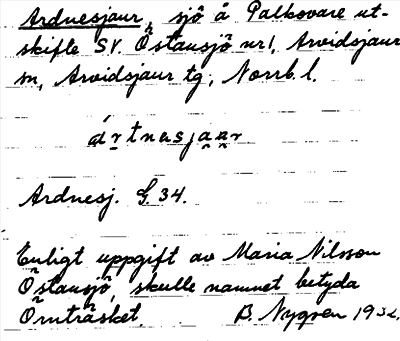 Ardnesjaur, sjö å Palkovare ut-
skifte SV. Östansjö nr 1, Arvidsjaur
sn, Arvidsjaur tg, Norrb. l.
ártnasjaur
Ardnesj. G. 34.
Enligt uppgift av Maria Nilsson
Östansjö, skulle namnet betyda
Örnträsket. B. Nygren 1932.